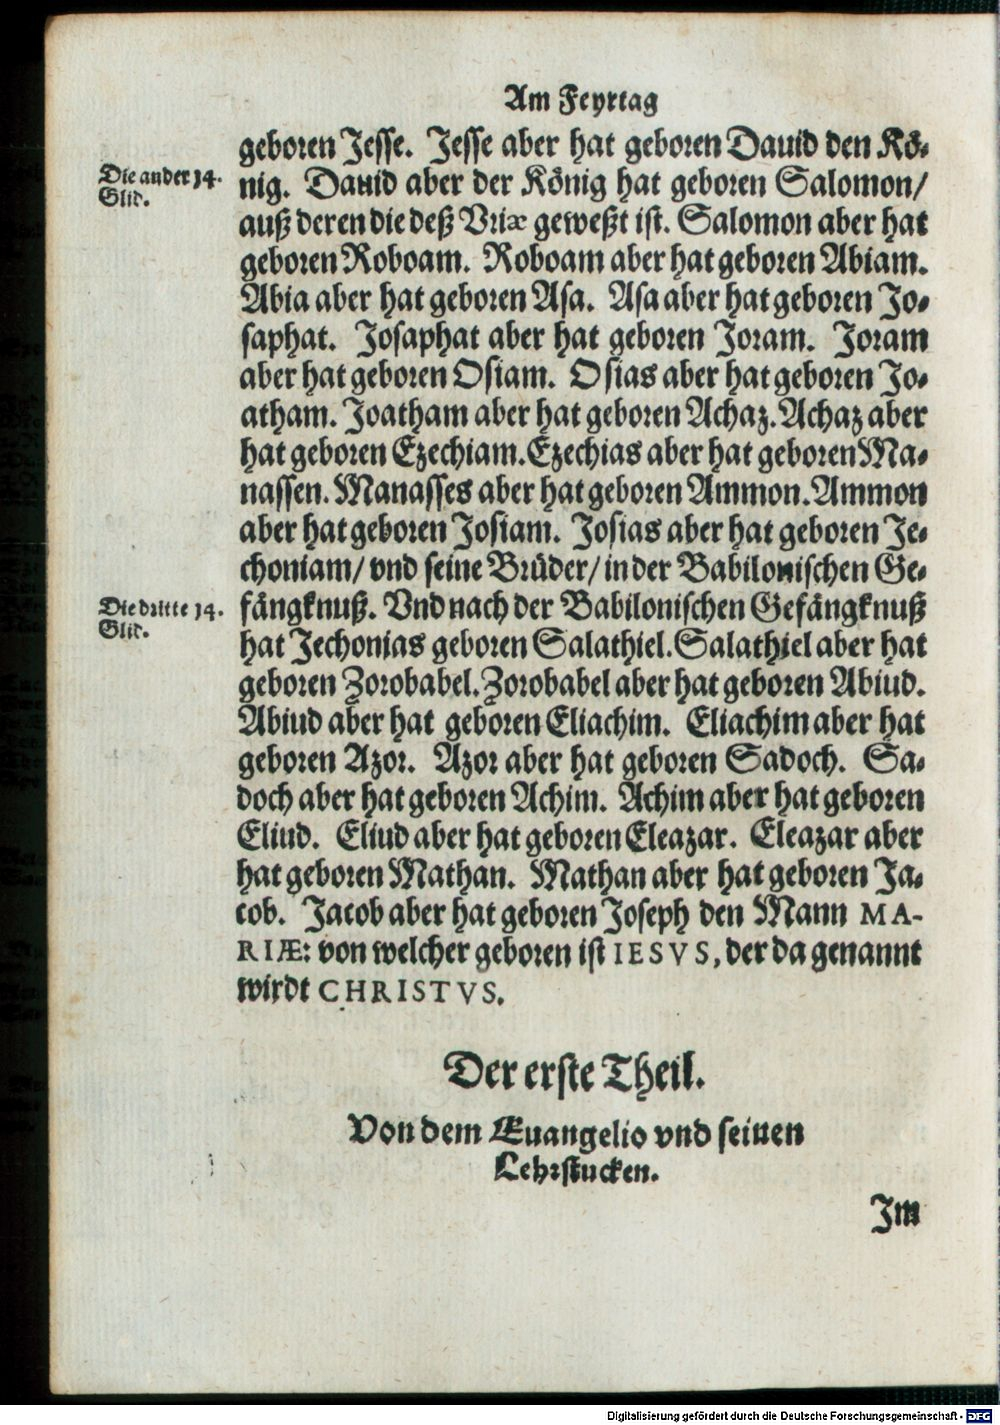 Am Feyrtag
geboren Jesse. Jesse aber hat geboren Dauid den Kö-
Die ander 14.
Glid.
nig. Dauid aber der König hat geboren Salomon/
auß deren die deß Vriæ geweßt ist. Salomon aber hat
geboren Roboam. Roboam aber hat geboren Abiam.
Abia aber hat geboren Asa. Asa aber hat geboren Jo-
saphat. Josaphat aber hat geboren Joram. Joram
aber hat geboren Osiam. Osias aber hat geboren Jo-
atham. Joatham aber hat geboren Achaz. Achaz aber
hat geboren Ezechiam. Ezechias aber hat geboren Ma-
nassen. Manasses aber hat geboren Ammon. Ammon
aber hat geboren Josiam. Josias aber hat geboren Je-
choniam/ vnd seine Brüder/ in der Babilonischen Ge-
Die dritte 14.
Glid.
fängknuß. Vnd nach der Babilonischen Gefängknuß
hat Jechonias geboren Salathiel. Salathiel aber hat
geboren Zorobabel. Zorobabel aber hat geboren Abiud.
Abiud aber hat geboren Eliachim. Eliachim aber hat
geboren Azor. Azor aber hat geboren Sadoch. Sa-
doch aber hat geboren Achim. Achim aber hat geboren
Eliud. Eliud aber hat geboren Eleazar. Eleazar aber
hat geboren Mathan. Mathan aber hat geboren Ja-
cob. Jacob aber hat geboren Joseph den Mann MA-
RIÆ: von welcher geboren ist IESVS, der da genannt
wirdt CHRISTVS.
Der erste Theil.
Von dem Euangelio vnd seinen
Lehrstucken.
Im
Digitalisierung gefördert durch die Deutsche Forschungsgemeinschaft - DFG